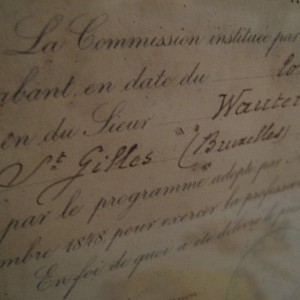 La Commission instituée par
abant, en date du
on du Sieur Wauter
St Gilles (Bruxelles)
par le programme adopté par
mbre 1848 pour exercer la profession
En foi de quoi a été délivré le